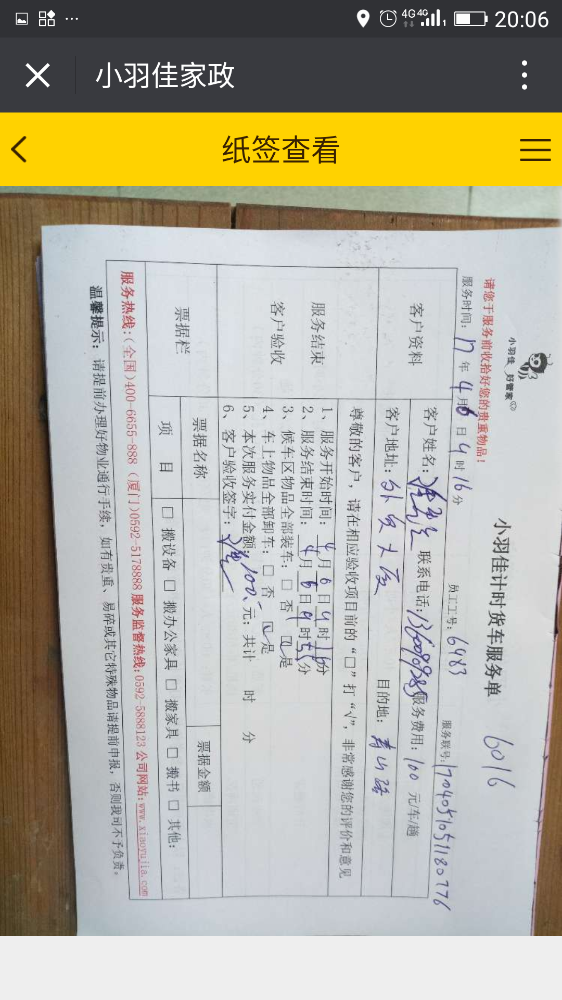 4G 4G 20:06
小羽佳家政
纸签查看
小羽佳 好管家
小羽佳计时货车服务单 6016
请您于服务前收拾好您的贵重物品!
服务时间: 17 年 4 月 6 日 4 时 16 分 员工工号: 6983 服务联号:
客户资料
客户姓名: 联系电话: 服务费用: 100 元/车/趟
客户地址: 外贸大厦 目的地:
尊敬的客户, 请在相应验收项目前的“□”打“√”, 非常感谢您的评价和意见
服务结束
客户验收
1、服务开始时间: 4 月 6 日 4 时 分
2、服务结束时间: 4 月 6 日 时 分
3、候车区物品全部装车: □ 否 是
4、车上物品全部卸车: □ 否 是
5、本次服务实付金额: 100 元; 共计 时 分
6、客户验收签字:
票据栏
票据名称 票据金额
项 目 □ 搬设备 □ 搬办公家具 □ 搬家具 □ 搬书 □ 其他:
服务热线:(全国)400-6655-888 (厦门)0592-5178888 服务监督热线:0592-5888123 公司网站:www.xiaoyujia.com
温馨提示: 请提前办理好物业通行手续, 如有贵重、易碎或其它特殊物品请提前申报, 否则我司不予负责。